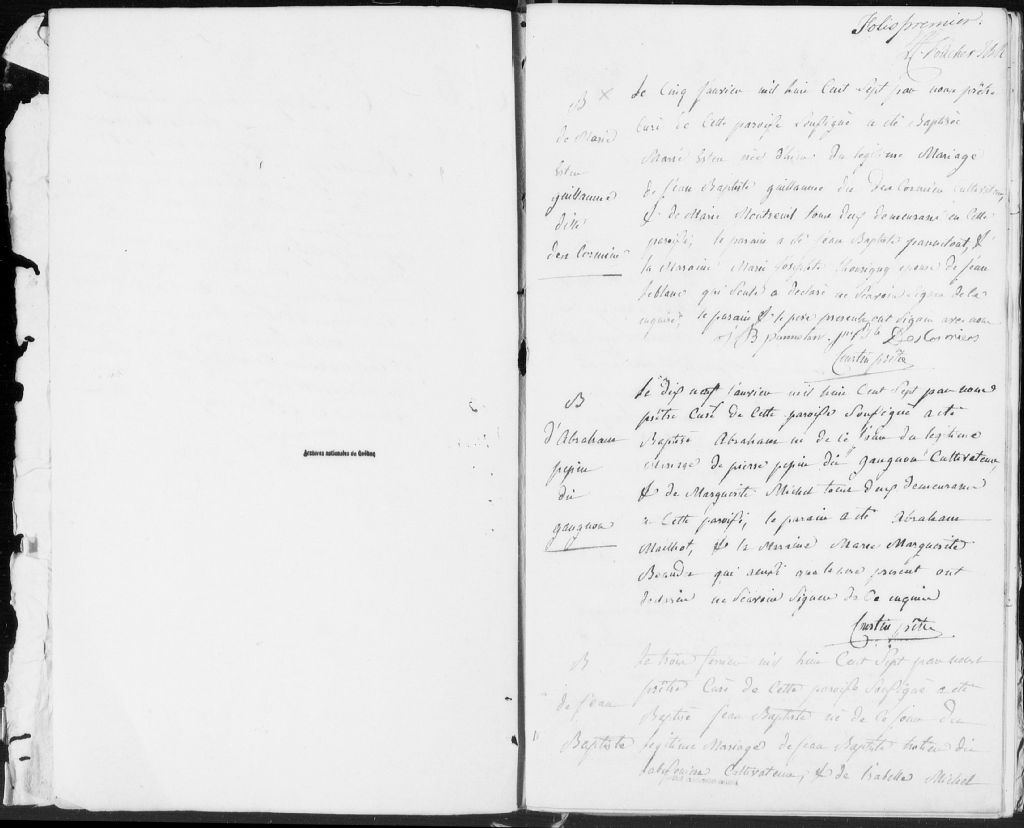 Archives nationales du Québec
Folio premier.
B
de Marie
Ester
guillaume
dit
des Cormier
Le Cinq Janvier mil huit Cent Sept par nous prêtre
Curé de Cette paroisse Soussigné a été Baptisée
Marie Ester née du legitime Mariage
de Jean Baptiste guillaume dit des Cormier Cultivateur,
& de Marie Montreuil tous deux demeurans en Cette
paroisse, le parain a été Jean Baptiste &
la Maraine Marie Josephte epouse de Jean
leblanc qui Seule a declaré ne Scavoir Signer de Ce
enquise, le parain & le pere presents ont Signer avec nous
J B Des Cormiers
Courtin prêtre
B
d'Abraham
pepin
dit
gaugnon
Le dix neuf Janvier mil huit Cent Sept par nous
prêtre Curé de Cette paroisse Soussigné a été
Baptisé Abraham né de Ce Jour du legitime
Mariage de pierre pepin dit gaugnon Cultivateur,
& de Marguerite Michel tous deux demeurans
en Cette paroisse, le parain a été Abraham
Mailhot, & la Maraine Marie Marguerite
Beaudet qui ainsi que le pere present ont
declaré ne Scavoir Signer de Ce enquis
Courtin prêtre
B
de Jean
Baptiste
Le trois fevrier mil huit Cent Sept par nous
prêtre Curé de Cette paroisse Soussigné a été
Baptisé Jean Baptiste né de Ce Jour du
legitime Mariage de Jean Baptiste dit
Cultivateur, & de Isabelle Michel